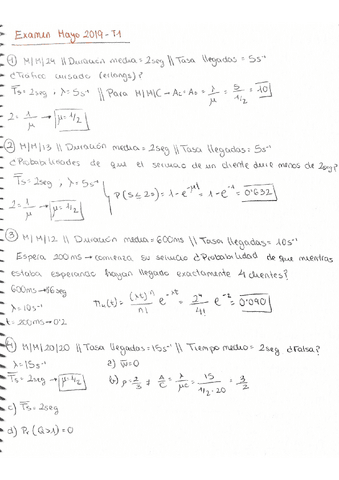 Examen Mayo 2019 - T1
① M/M/24 // Duración media = 2seg // Tasa llegadas = 5s⁻¹
¿Tráfico cursado (erlangs)?
T̄s = 2seg, λ = 5s⁻¹ // Para M/M/C → Ac = Ao = λ/μ = 5/(1/2) = 10
2 = 1/μ → μ = 1/2
② M/M/13 // Duración media = 2seg // Tasa llegadas = 5s⁻¹
¿Probabilidades de que el servicio de un cliente dure menos de 2seg?
T̄s = 2seg, λ = 5s⁻¹
P(S≤2) = 1-e^(-μt) = 1-e^(-1) = 0'632
2 = 1/μ → μ = 1/2
③ M/M/12 // Duración media = 600ms // Tasa llegadas = 10s⁻¹
Espera 200ms → comienza su servicio ¿Probabilidad de que mientras
estaba esperando hayan llegado exactamente 4 clientes?
600ms →
λ = 10s⁻¹
t = 200ms → 0'2
(λt)ⁿ/n! e^(-λt) = 2⁴/4! e⁻² = 0'090
④ M/M/20/20 // Tasa llegadas = 15s⁻¹ // Tiempo medio = 2seg ¿Falsa?
λ = 15s⁻¹ a) w̄ = 0
T̄s = 2seg → μ = 1/2 b) ρ = 2/3 ≠ A/C = λ/μc = 15/(1/2·20) = 3/2
c) T̄s = 2seg
d) Pr(Q>1) = 0